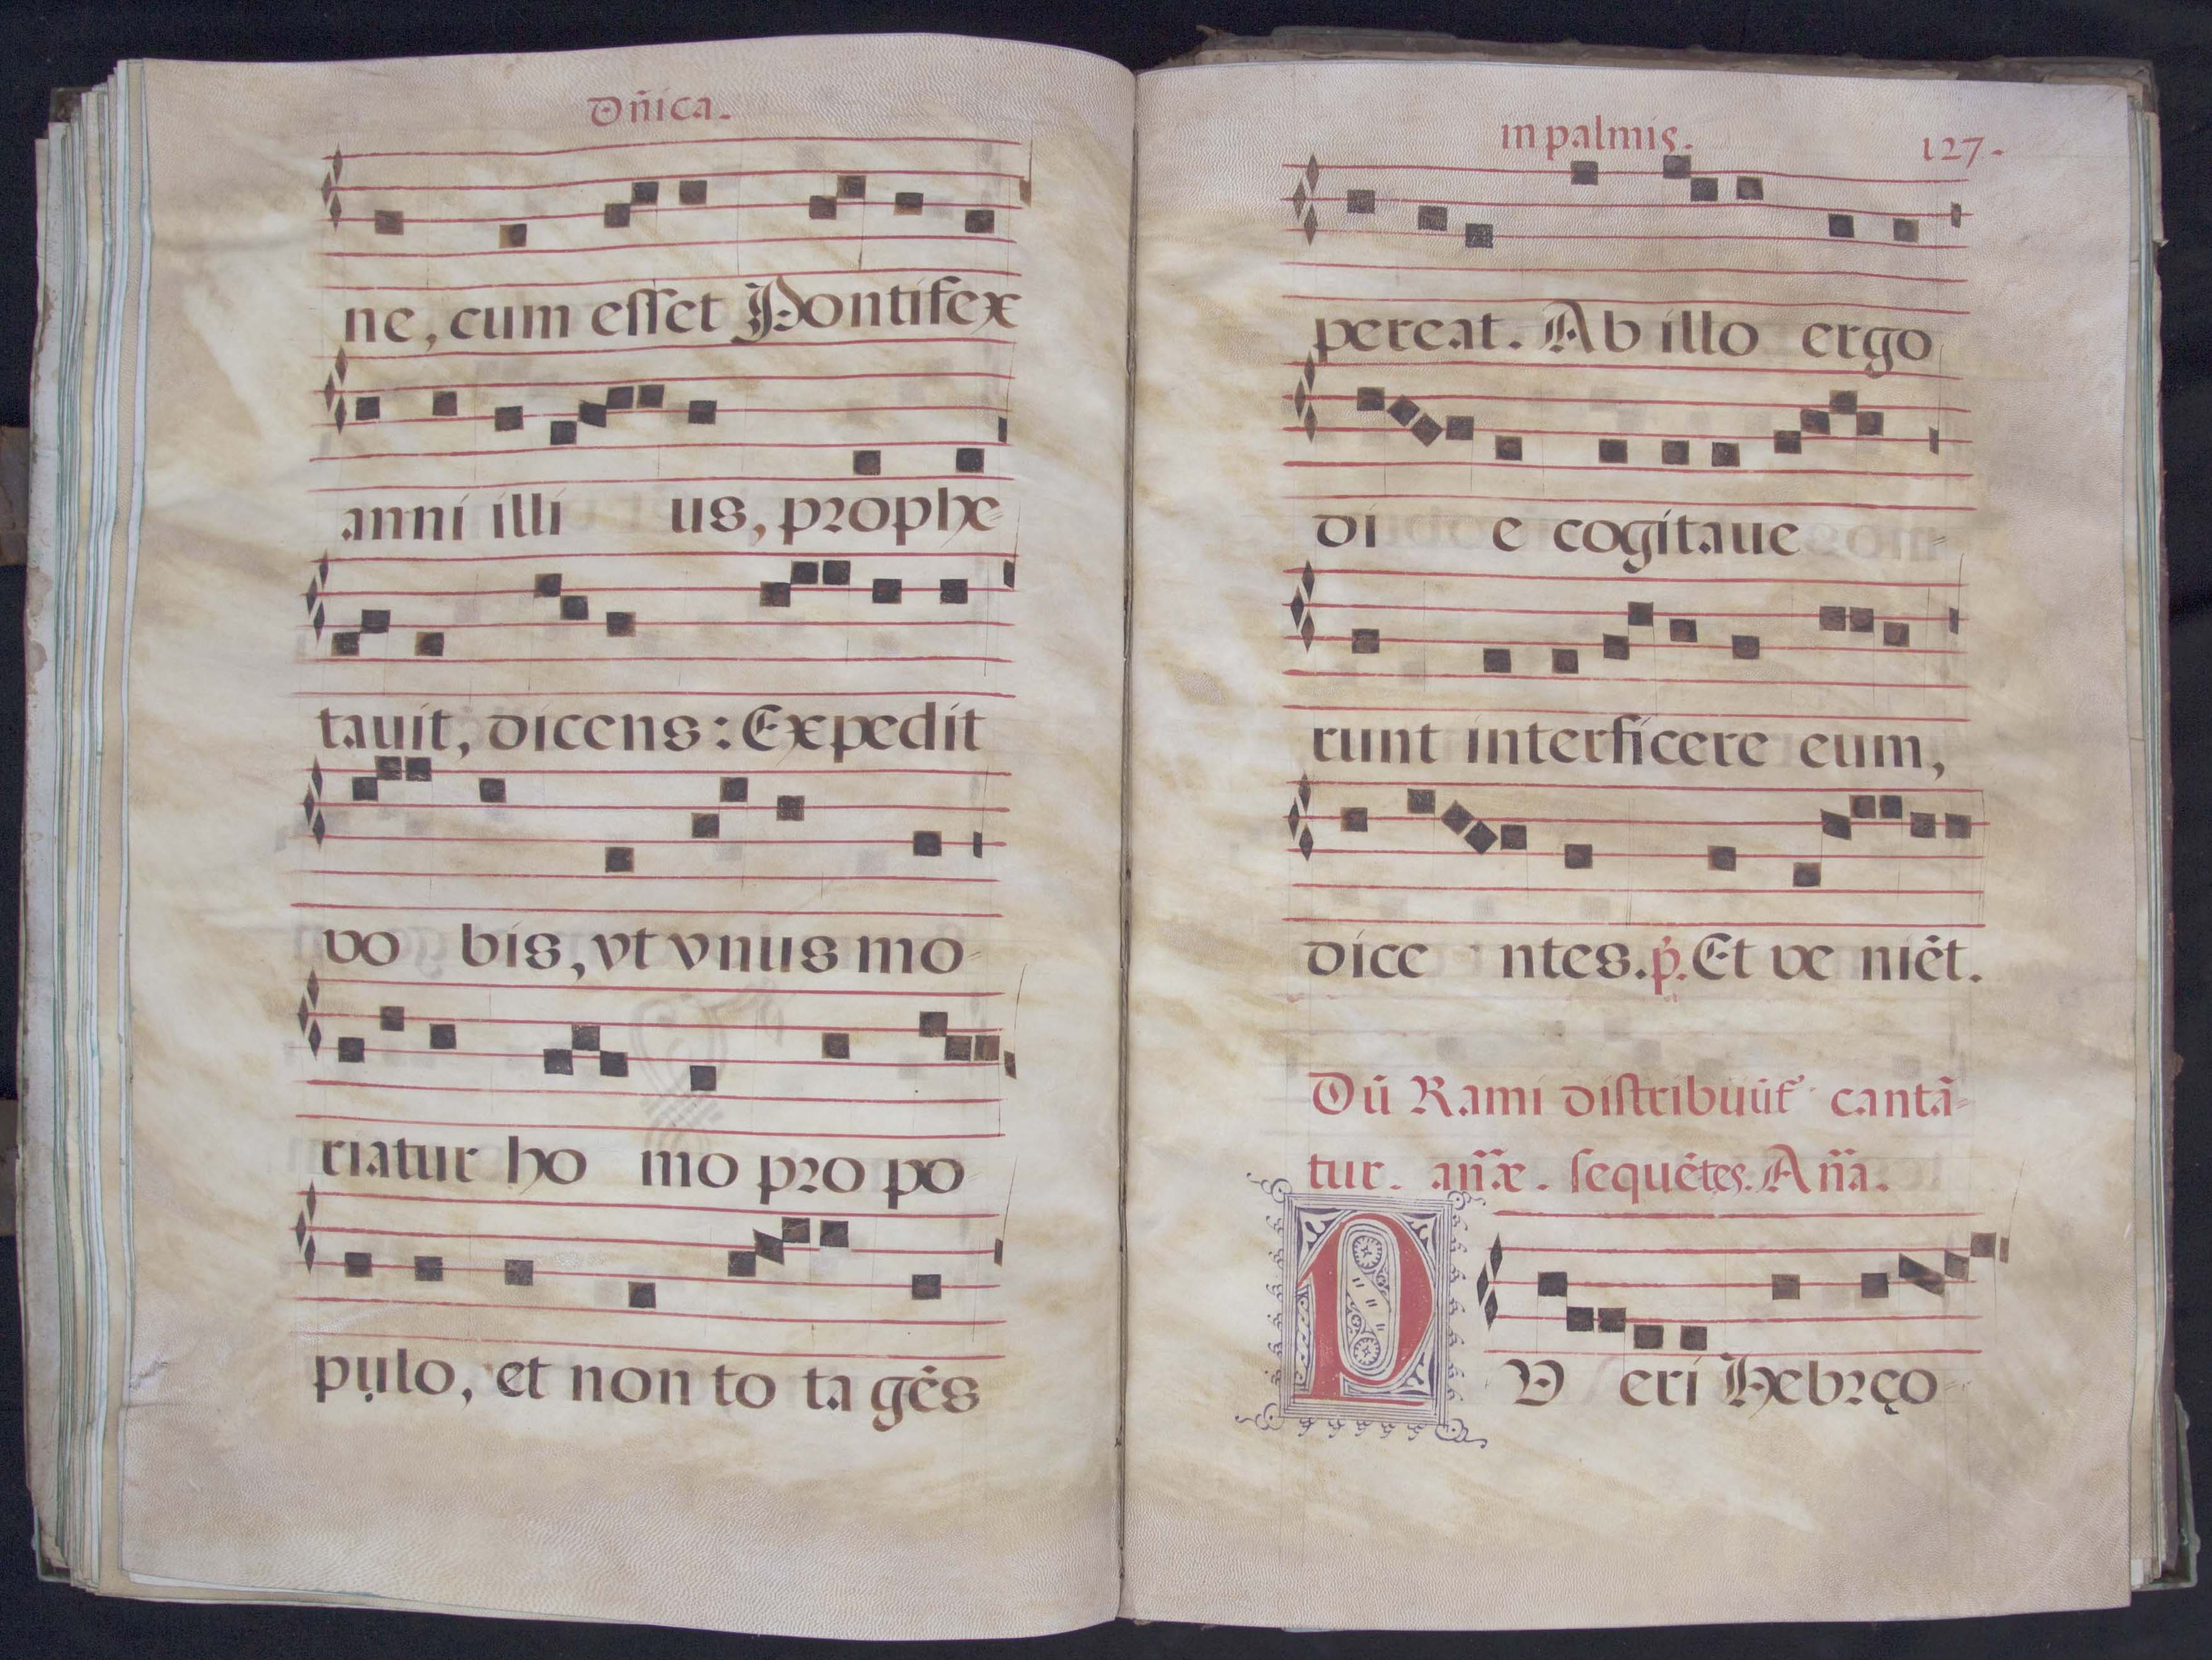 Dn̄ica.
ne, cum eſſet Pontifex
anni illi us, prophe-
tauit, dicens: Expedit
vo bis, vt vnus mo-
riatur ho mo pro po-
pulo, et non to ta gēs
in palmis. 127.
pereat. Ab illo ergo
di e cogitaue-
runt interficere eum,
dice ntes. p̄. Et ve niēt.
Dū Rami diſtribuūt cantā-
tur. añæ. ſequētes. Añā.
PV eri Hebręo-